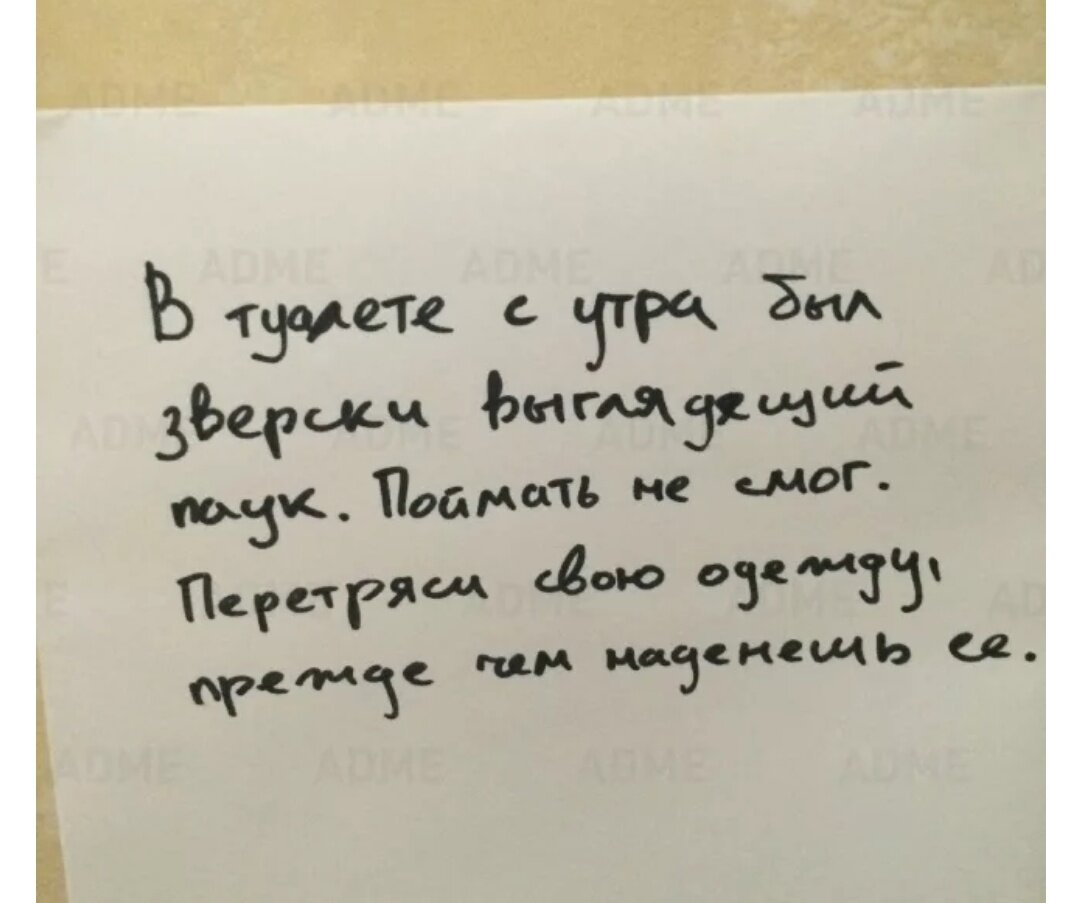 В туалете с утра был
зверски выглядящий
паук. Поймать не смог.
Перетряси свою одежду,
прежде чем наденешь ее.